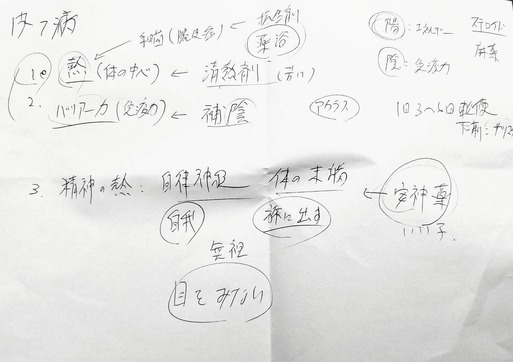 皮フ病
抗生剤
手当(脱ステ)
薬浴
陽:エネルギー
ステロイド
陰:免疫力
1. 熱(体の中心) ← 清熱剤(苦い)
2. バリアー力(免疫力) ← 補陰
アトラス
1日3〜4回 軟便
下剤:
3. 精神の熱: 自律神経 体の末梢 ← 安神薬
自我
旅に出す
いい子。
無視
目をみない